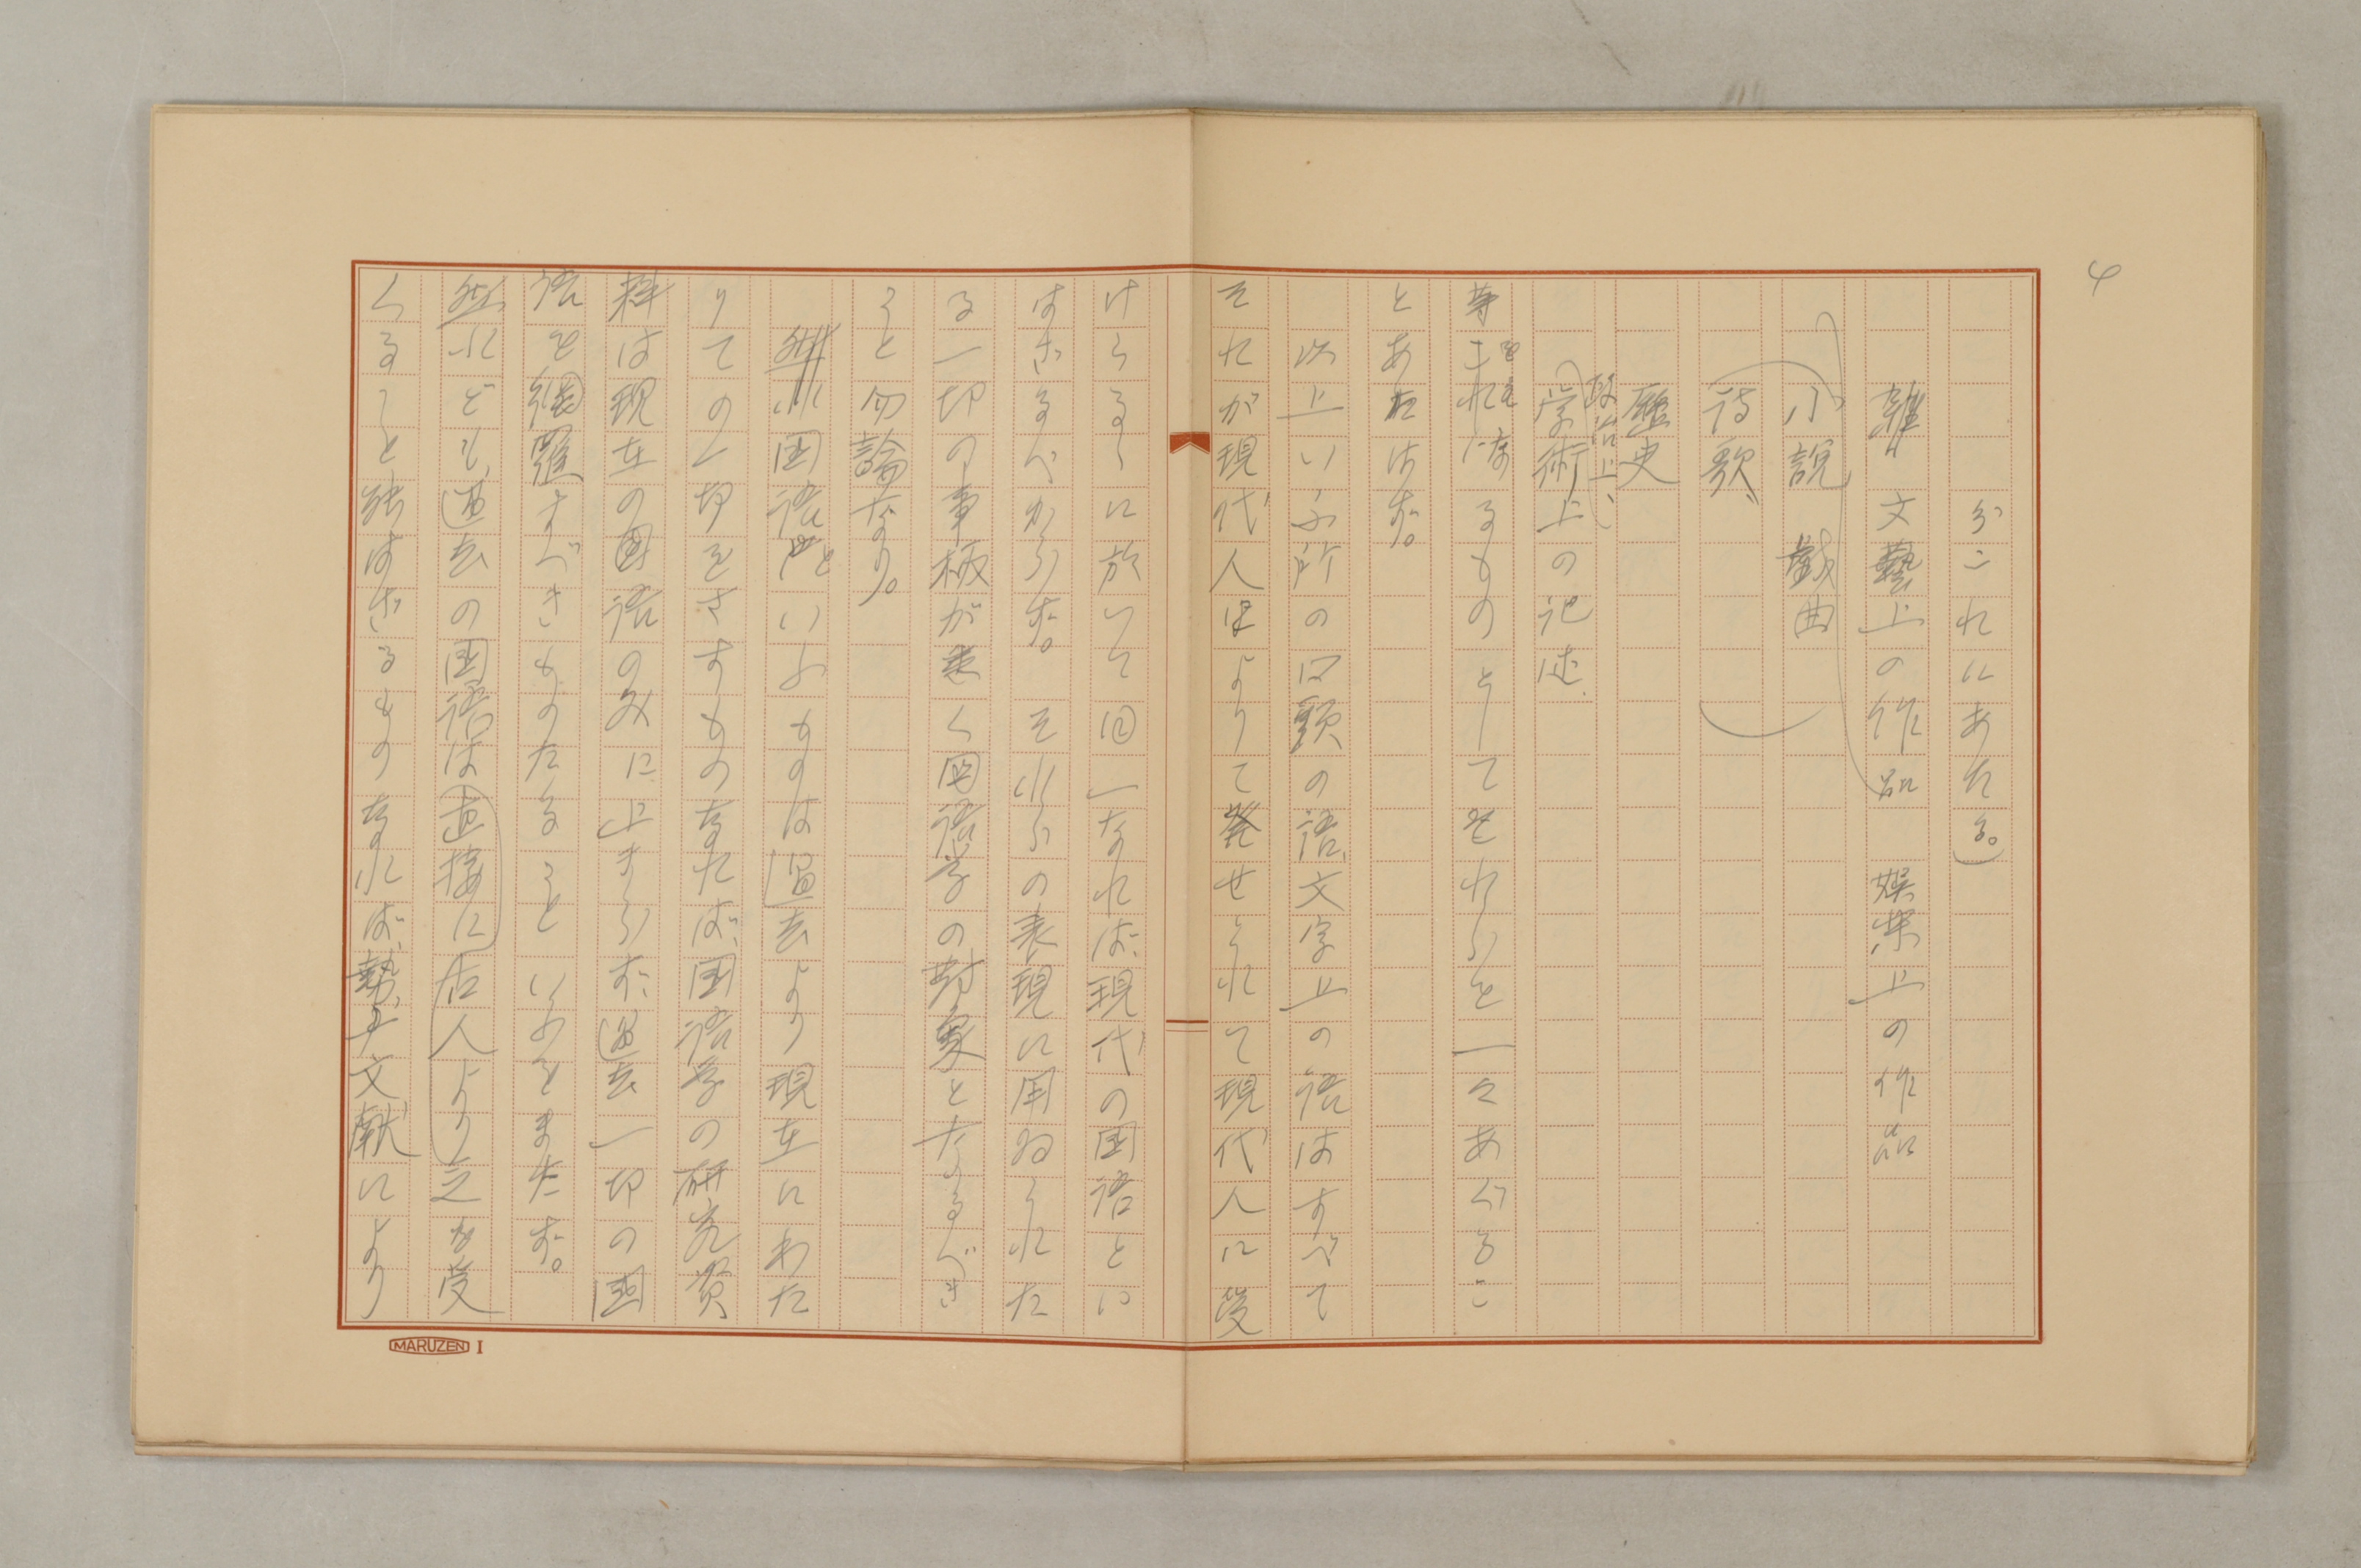 4
がこれにあたる。)
雑 文藝上の作品 娯楽上の作品
小説 戯曲
詩歌、
歴史
政治上、
学術上の記述
等これにするものとしてそれらを一々あぐるこ
とあたはず。
以上いふ所の口頭の語、文字上の語はすべて
それが現代人によりて発せられて現代人に受
けらるゝに於いて同一なれば、現代の国語とい
はざるべからず。それらの表現に用ゐられた
る一切の事柄が悉く国語学の対象となるべき
こと勿論なり。
然れ国語といふものは過去より現在にわた
りての一切をさすものなれば、国語学の研究資
料は現在の国語のみに止まらず、過去一切の国
語を網羅すべきものたることいふをまたず。
然れども、過去の国語は直接に古人より之を受
くること能はざるものなれば、勢文献により
MARUZEN I